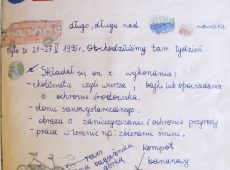 długo, długo nad
Było to 21-23 IV 1995r. Obchodziliśmy tam tydzień
Składał się on z wykonania:
- ekolitratu czyli wiersza, bajki lub opowiadania
o ochronie środowiska.
- domu samowystarczalnego,
- obrazu o zanieczyszczaniu i ochronie przyrody
- praca w terenie np: zbieranie śmieci.
rower
bagażnika
kompot
bananowy